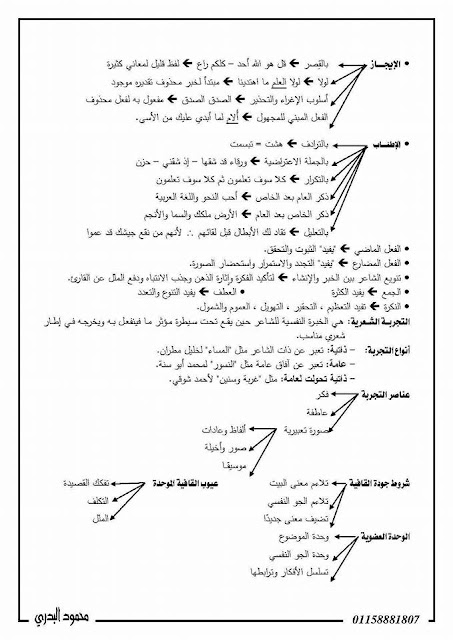 • الإيجـــاز ← بالقصر ← قل هو الله أحد – كلكم راعٍ ← لفظ قليل لمعاني كثيرة
لولا ← لولا العلم ما اهتدينا ← مبتدأ لخبر محذوف تقديره موجود
أسلوب الإغراء والتحذير ← الصدق الصدق ← مفعول به لفعل محذوف
الفعل المبني للمجهول ← ألام لما أبدي عليك من الأسى.
• الإطنـــاب ← بالترادف ← هشت = تبسمت
بالجملة الاعتراضية ← ورقاء قد شقها – إذ شقني – حزن
بالتكرار ← كلا سوف تعلمون ثم كلا سوف تعلمون
ذكر العام بعد الخاص ← أحب النحو واللغة العربية
ذكر الخاص بعد العام ← الأرض ملكك والسما والأنجم
بالتعليل ← تقاد لك الأبطال قبل لقائهم ∴ لأنهم من نقع جيشك قد عموا
• الفعل الماضي ← "يفيد" الثبوت والتحقق.
• الفعل المضارع ← "يفيد" التجدد والاستمرار واستحضار الصورة.
• تنويع الشاعر بين الخبر والإنشاء ← لتأكيد الفكرة وإثارة الذهن وجذب الانتباه ودفع الملل عن القارئ.
• الجمع ← يفيد الكثرة • العطف ← يفيد التنوع والتعدد
• النكرة ← تفيد التعظيم ، التحقير ، التهويل ، العموم والشمول.
التجربة الشعرية: هي الخبرة النفسية للشاعر حين يقع تحت سيطرة مؤثر ما فينفعل به ويخرجه في إطار
شعري مناسب.
أنواع التجربة: – ذاتية: تعبر عن ذات الشاعر مثل "المساء" لخليل مطران.
– عامة: تعبر عن آفاق عامة مثل "النسور" لمحمد أبو سنة.
– ذاتية تحولت لعامة: مثل "غربة وحنين" لأحمد شوقي.
عناصر التجربة ← فكر
عاطفة
صورة تعبيرية ← ألفاظ وعادات
صور وأخيلة
موسيقا
شروط جودة القافية ← تلاءم معنى البيت
تلاءم الجو النفسي
تضيف معنى جديدًا
عيوب القافية الموحدة ← تفكك القصيدة
التكلف
الملل
الوحدة العضوية ← وحدة الموضوع
وحدة الجو النفسي
تسلسل الأفكار وترابطها
01158881807
محمود البدري